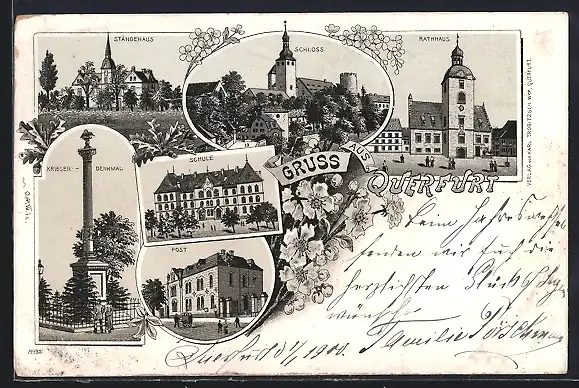 STÄNDEHAUS
SCHLOSS
RATHHAUS
KRIEGER-DENKMAL
SCHULE
POST
GRUSS AUS
QUERFURT
VERLAG von KARL TROBITZSCH WWE, QUERFURT.
Beim Jahreswechsel
senden wir Euch die
herzlichsten Glück & Segens
wünsche
Familie
Querfurt 1/1 1900.